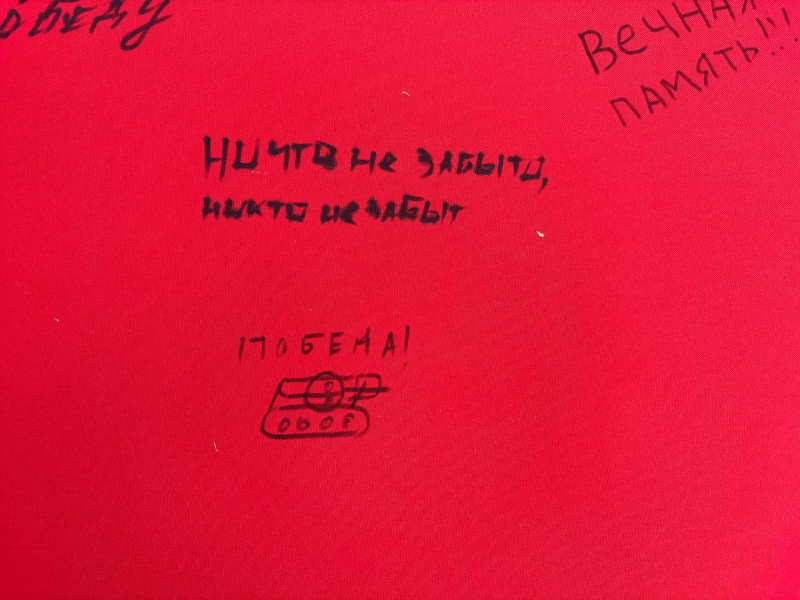 ОБЕДУ
Вечная
память!!!
Ничто не забыто,
никто не забыт
ПОБЕДА!